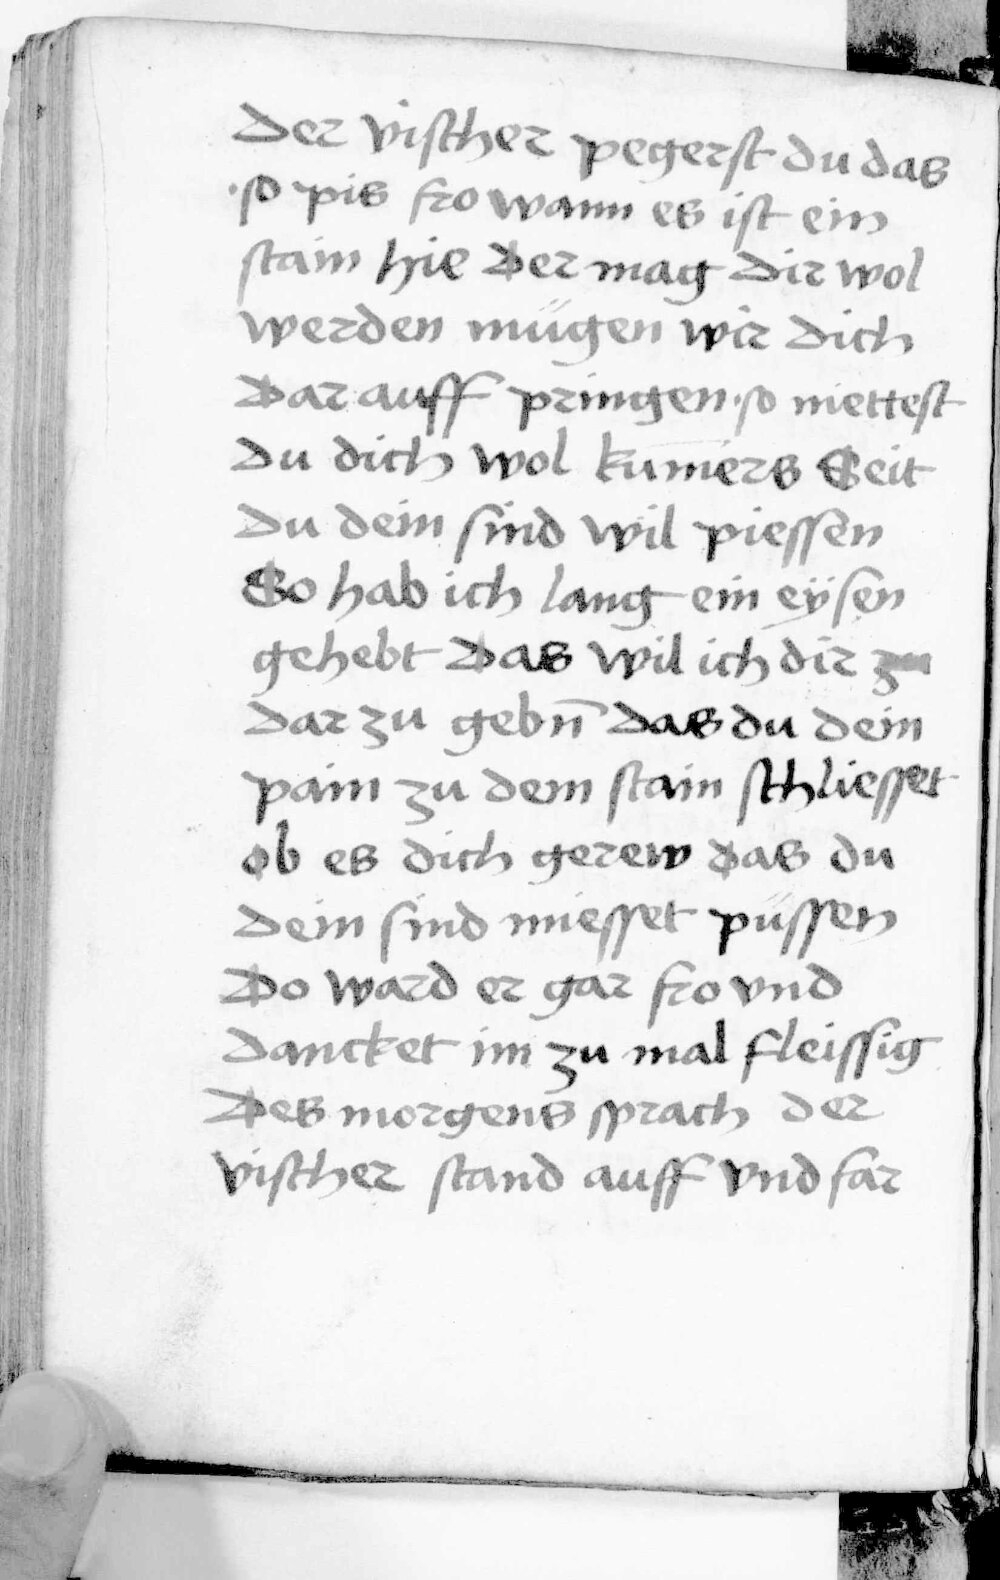 Der vischer pegerst du das
·so pis fro wann es ist ein
stain hie Der mag dir wol
werden mügen wir dich
Dar auff pringen·so niettest
du dich wol kum̄ers Seit
du dein sind wil piessen
So hab ich lang ein eÿsen
gehebt Das wil ich dir zu
dar zu gebn̄ das du dein
pain zu dem stain schliesset
ob es dich gerew das du
dein sind miesset püssen
Do ward er gar fro vnd
dancket im zu mal fleissig
Des morgens sprach der
vischer stand auff vnd far